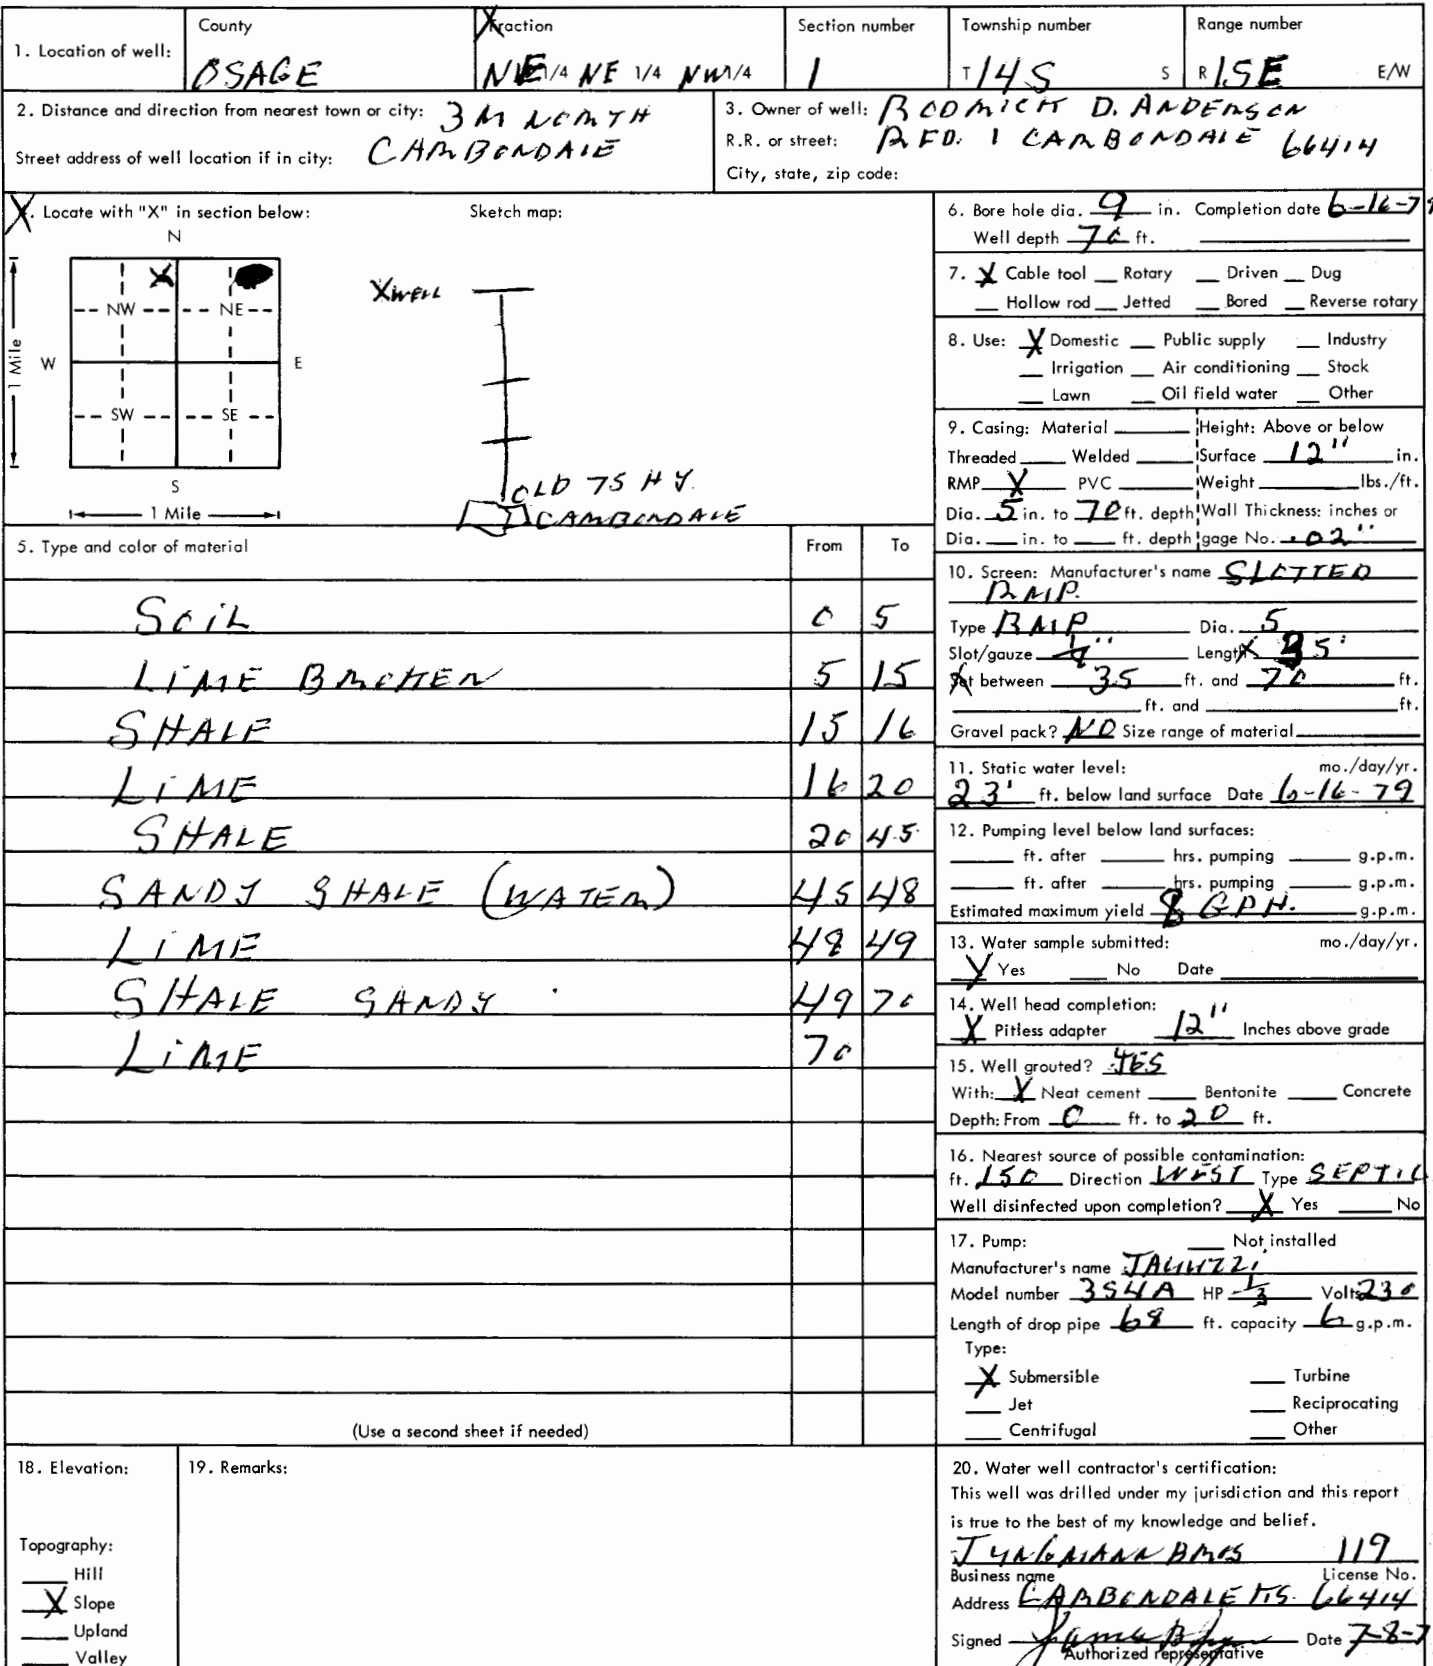 County Fraction Section number Township number Range number
1. Location of well: OSAGE NE 1/4 NE 1/4 NW 1/4 1 T 14S S R 15E E/W
2. Distance and direction from nearest town or city: 3 M NORTH
Street address of well location if in city: CARBONDALE
3. Owner of well: RODRICK D. ANDERSON
R.R. or street: RFD. 1 CARBONDALE 66414
City, state, zip code:
4. Locate with "X" in section below: Sketch map:
N
X
NW NE
W E
SW SE
S
1 Mile
1 Mile
X WELL
OLD 75 HY.
CARBONDALE
5. Type and color of material From To
SOIL 0 5
LIME BROKEN 5 15
SHALE 15 16
LIME 16 20
SHALE 20 45
SANDY SHALE (WATER) 45 48
LIME 48 49
SHALE SANDY 49 70
LIME 70
(Use a second sheet if needed)
6. Bore hole dia. 9 in. Completion date 6-16-79
Well depth 70 ft.
7. X Cable tool Rotary Driven Dug
Hollow rod Jetted Bored Reverse rotary
8. Use: X Domestic Public supply Industry
Irrigation Air conditioning Stock
Lawn Oil field water Other
9. Casing: Material Height: Above or below
Threaded Welded Surface 12" in.
RMP X PVC Weight lbs./ft.
Dia. 5 in. to 70 ft. depth Wall Thickness: inches or
Dia. in. to ft. depth gage No. .02"
10. Screen: Manufacturer's name SLOTTED
RMP.
Type RMP Dia. 5
Slot/gauze 1/4" Length 35'
Set between 35 ft. and 70 ft.
ft. and ft.
Gravel pack? NO Size range of material
11. Static water level: mo./day/yr.
23' ft. below land surface Date 6-16-79
12. Pumping level below land surfaces:
ft. after hrs. pumping g.p.m.
ft. after hrs. pumping g.p.m.
Estimated maximum yield 8 G.P.H. g.p.m.
13. Water sample submitted: mo./day/yr.
X Yes No Date
14. Well head completion:
X Pitless adapter 12" Inches above grade
15. Well grouted? YES
With: X Neat cement Bentonite Concrete
Depth: From 0 ft. to 20 ft.
16. Nearest source of possible contamination:
ft. 150 Direction WEST Type SEPTIC
Well disinfected upon completion? X Yes No
17. Pump: Not installed
Manufacturer's name JACUZZI
Model number 3S4A HP 1/3 Volts 230
Length of drop pipe 68 ft. capacity 6 g.p.m.
Type:
X Submersible Turbine
Jet Reciprocating
Centrifugal Other
18. Elevation:
Topography:
Hill
X Slope
Upland
Valley
19. Remarks:
20. Water well contractor's certification:
This well was drilled under my jurisdiction and this report
is true to the best of my knowledge and belief.
JUNGMANN BROS 119
Business name License No.
Address CARBONDALE KS. 66414
Signed Date 7-8-7
Authorized representative